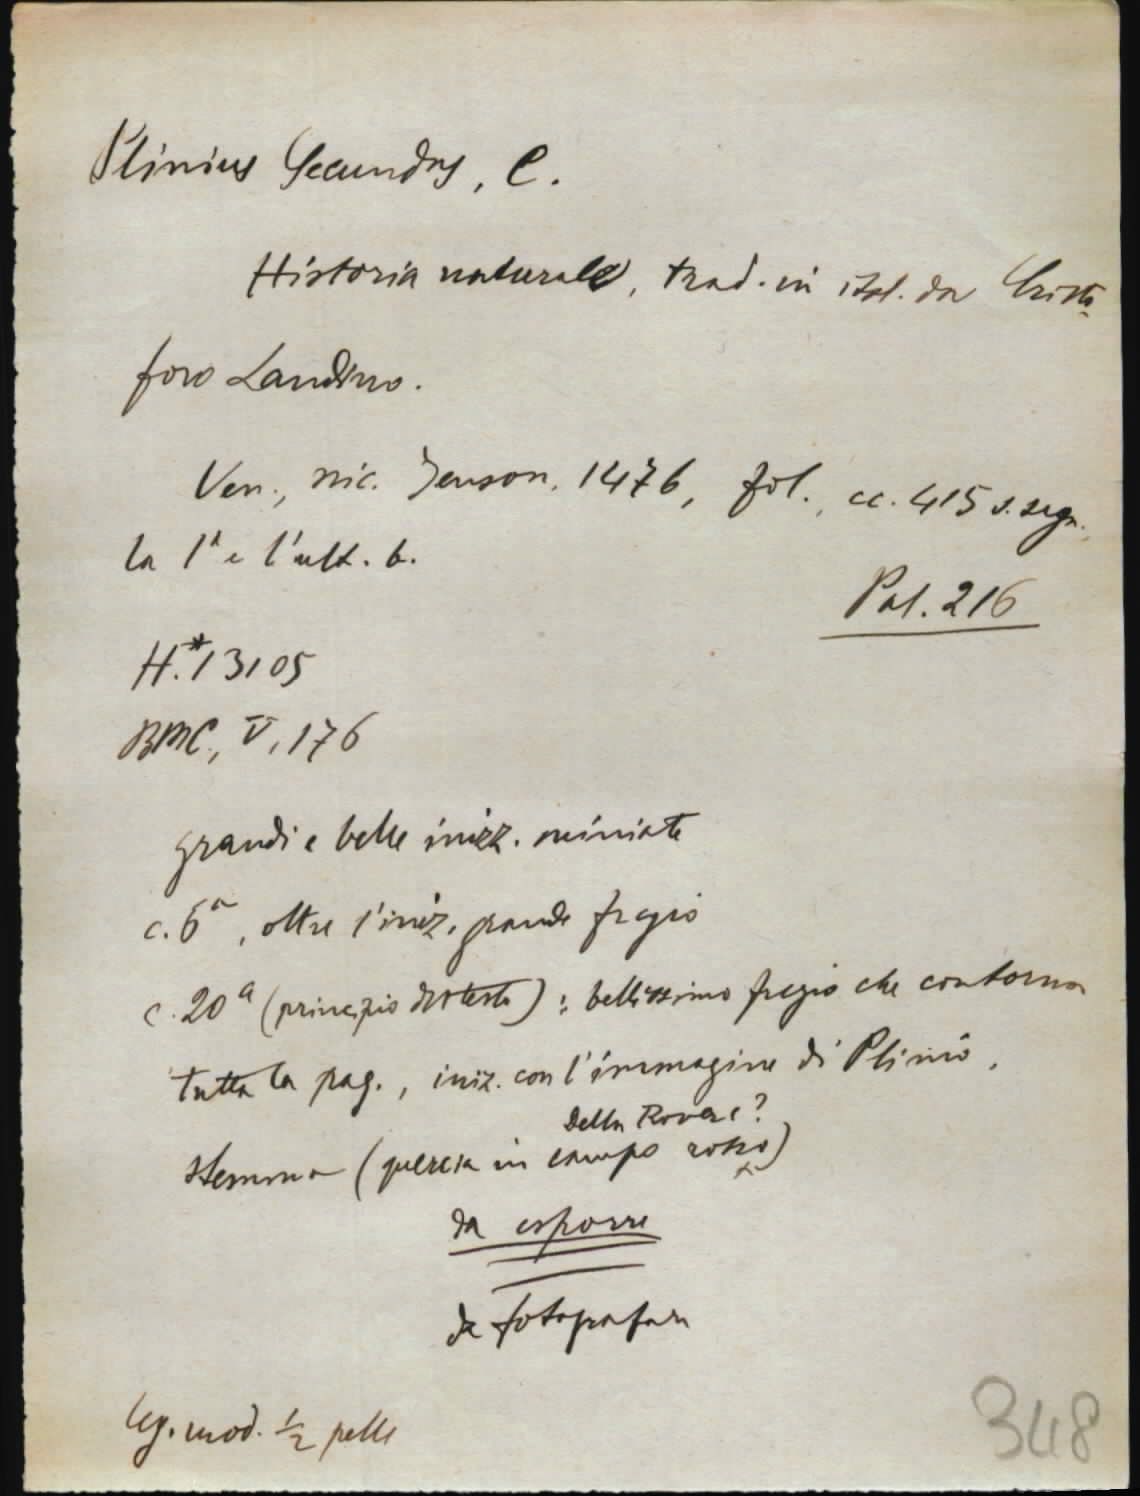 Plinius Secundus, C.
Historia naturale, trad. in ital. da Cristo
foro Landino.
Ven., Nic. Jenson, 1476, fol., cc. 415 s. segn.,
la 1ª e l'ult. b.
Pal. 216
H.*13105
BMC, V, 176
grandi e belle inizz. miniate
c. 6ª, oltre l'iniz. grande fregio
c. 20ª (principio del testo): bellissimo fregio che contorna
tutta la pag., iniz. con l'immagine di Plinio,
Della Rovere?
stemma (quercia in campo rosso)
da esporre
da fotografare
leg. mod. ½ pelle
348